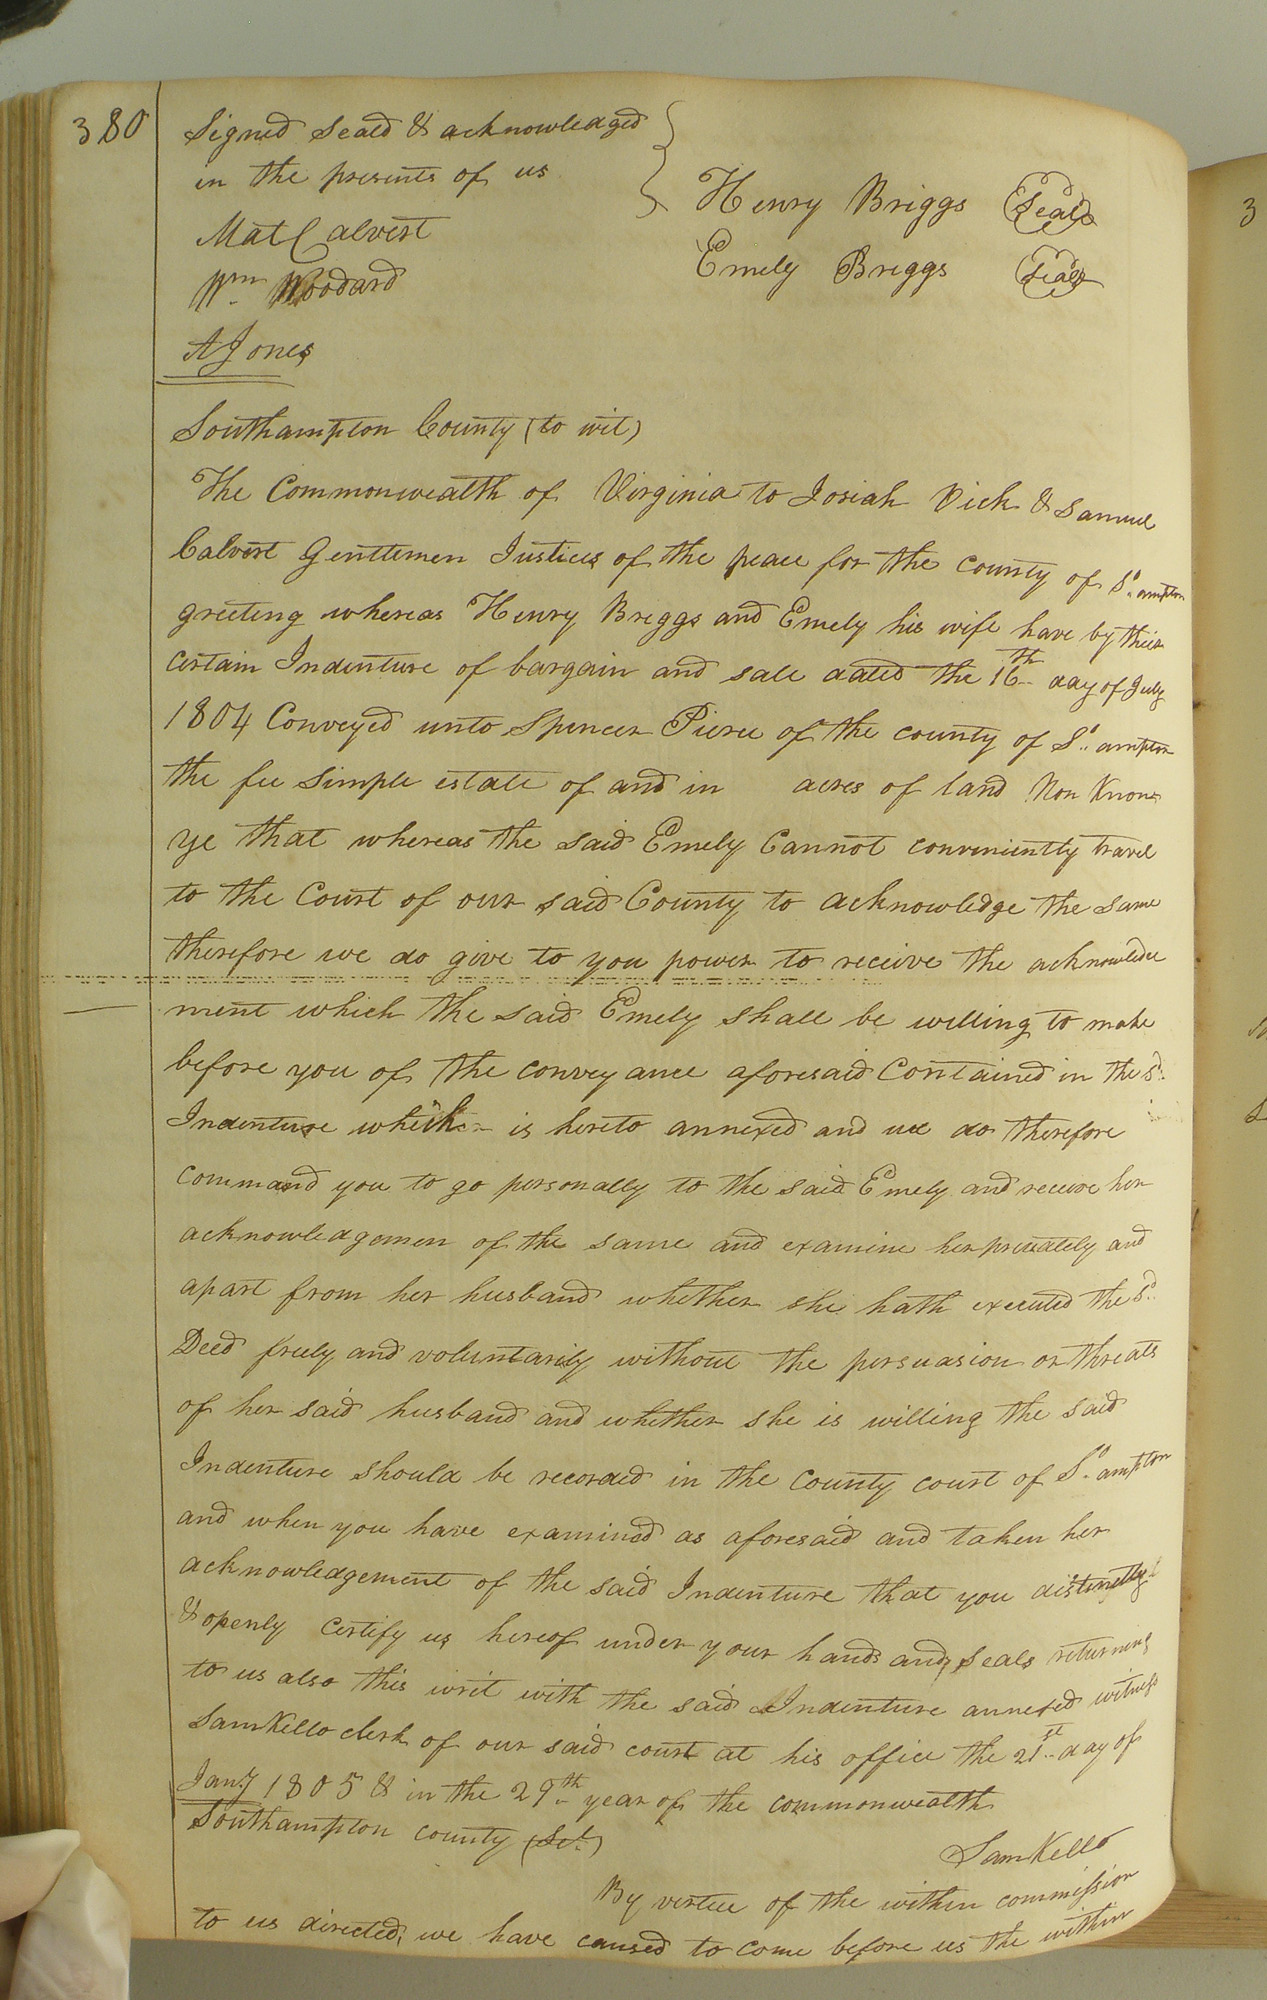 380
Signed Seald & acknowledged
in the presents of us
Henry Briggs Seal
Mat Calvert
Emely Briggs Seal
Wm Woodard
A Jones
Southampton County (to wit)
The Commonwealth of Virginia to Josiah Vick & Samuel
Calvert Gentlemen Justices of the peace for the county of So. ampton
greeting whereas Henry Briggs and Emely his wife have by their
certain Indenture of bargain and sale dated the 16th day of July
1804 Conveyed unto Spencer Pierce of the county of So. ampton
the fee simple estate of and in acres of land Now Know
ye that whereas the said Emely Cannot conveniently travel
to the Court of our said County to acknowledge the same
therefore we do give to you power to receive the acknowledge
ment which the said Emely shall be willing to make
before you of the conveyance aforesaid Contained in the sd.
Indenture which is hereto annexed and we do therefore
command you to go personally to the said Emely and receive her
acknowledgemen of the same and examine her privately and
apart from her husband whether she hath executed the sd.
Deed freely and voluntarily without the persuasion or threats
of her said husband and whether she is willing the said
Indenture should be recorded in the County court of So. ampton
and when you have examined as aforesaid and taken her
acknowledgement of the said Indenture that you distinctly
& openly certify us hereof under your hands and seals returning
to us also this writ with the said Indenture annexed witness
Sam Kello clerk of our said court at his office the 21st day of
Jany 1805 & in the 29th year of the commonwealth
Sam Kello
Southampton county (Sct.)
By virtue of the within commission
to us directed, we have caused to come before us the within
3